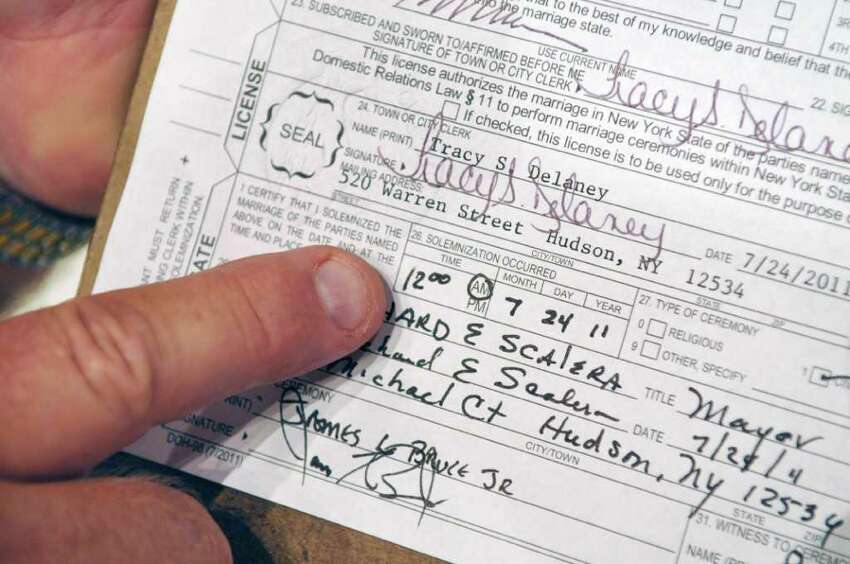 to the best of my knowledge and belief that the
the marriage state.
23. SUBSCRIBED AND SWORN TO/AFFIRMED BEFORE ME
SIGNATURE OF TOWN OR CITY CLERK
USE CURRENT NAME
Tracy S. Delaney
22. SIG
3RD
4TH
LICENSE
This license authorizes the marriage in New York State of the parties name
Domestic Relations Law § 11 to perform marriage ceremonies within New York Sta
If checked, this license is to be used only for the purpose o
SEAL
24. TOWN OR CITY CLERK
NAME (PRINT) Tracy S. Delaney
SIGNATURE Tracy S. Delaney
DATE 7/24/2011
MAILING ADDRESS:
520 Warren Street Hudson, NY 12534
STREET CITY/TOWN STATE ZIP
MUST RETURN
CLERK WITHIN
SOLEMNIZATION.
I CERTIFY THAT I SOLEMNIZED THE
MARRIAGE OF THE PARTIES NAMED
ABOVE ON THE DATE AND AT THE
TIME AND PLACE
26. SOLEMNIZATION OCCURRED
TIME MONTH DAY YEAR
12 00 AM PM 7 24 11
27. TYPE OF CEREMONY
0 RELIGIOUS
9 OTHER, SPECIFY
1
HARD E SCALERA
TITLE Mayor
DATE 7/24/11
Michael Ct Hudson, NY 12534
CITY/TOWN STATE ZIP
CEREMONY
JAMES L BRUCE JR
SIGNATURE
DOH-98 (7/2011)
31. WITNESS TO CEREMO
NAME (PR